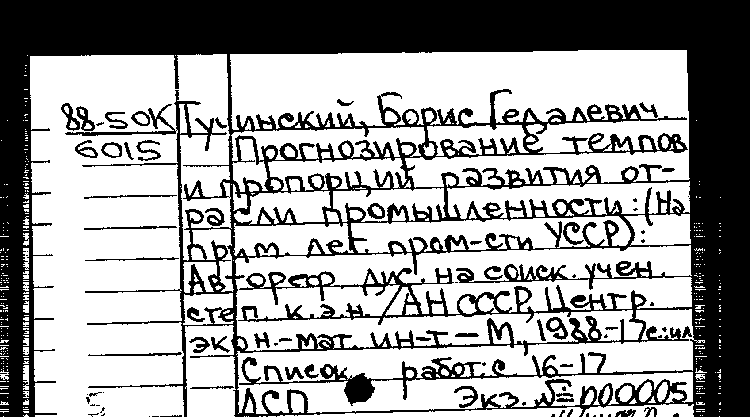 88-50К Тучинский, Борис Гедалевич.
6015 Прогнозирование темпов
и пропорций развития от-
расли промышленности: (На
прим. лег. пром-сти УССР):
Автореф. дис. на соиск. учен.
степ. к.э.н. / АН СССР, Центр.
экон.-мат. ин-т — М., 1988.-17с.:ил
Список работ: с 16-17
ДСП Экз. № 000005.